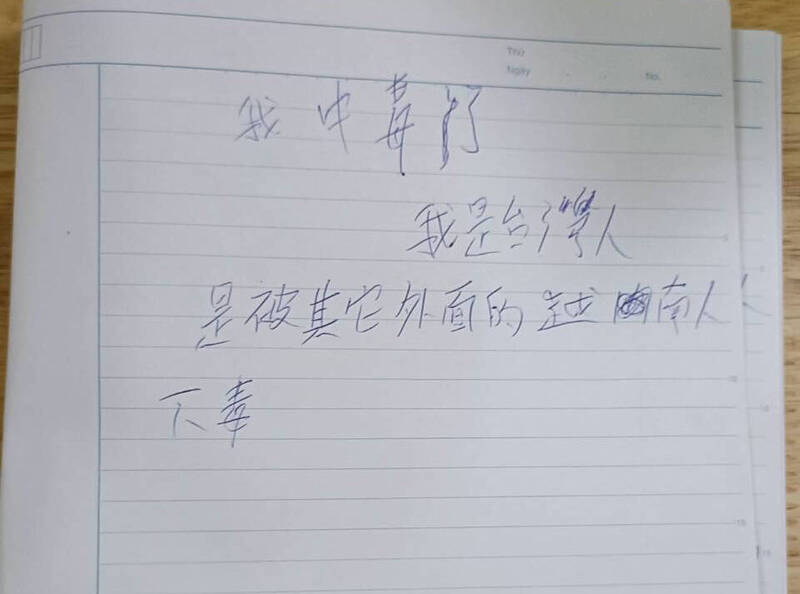 Thứ
Ngày
No.
我中毒了
我是台灣人
是被其它外面的越南人
下毒